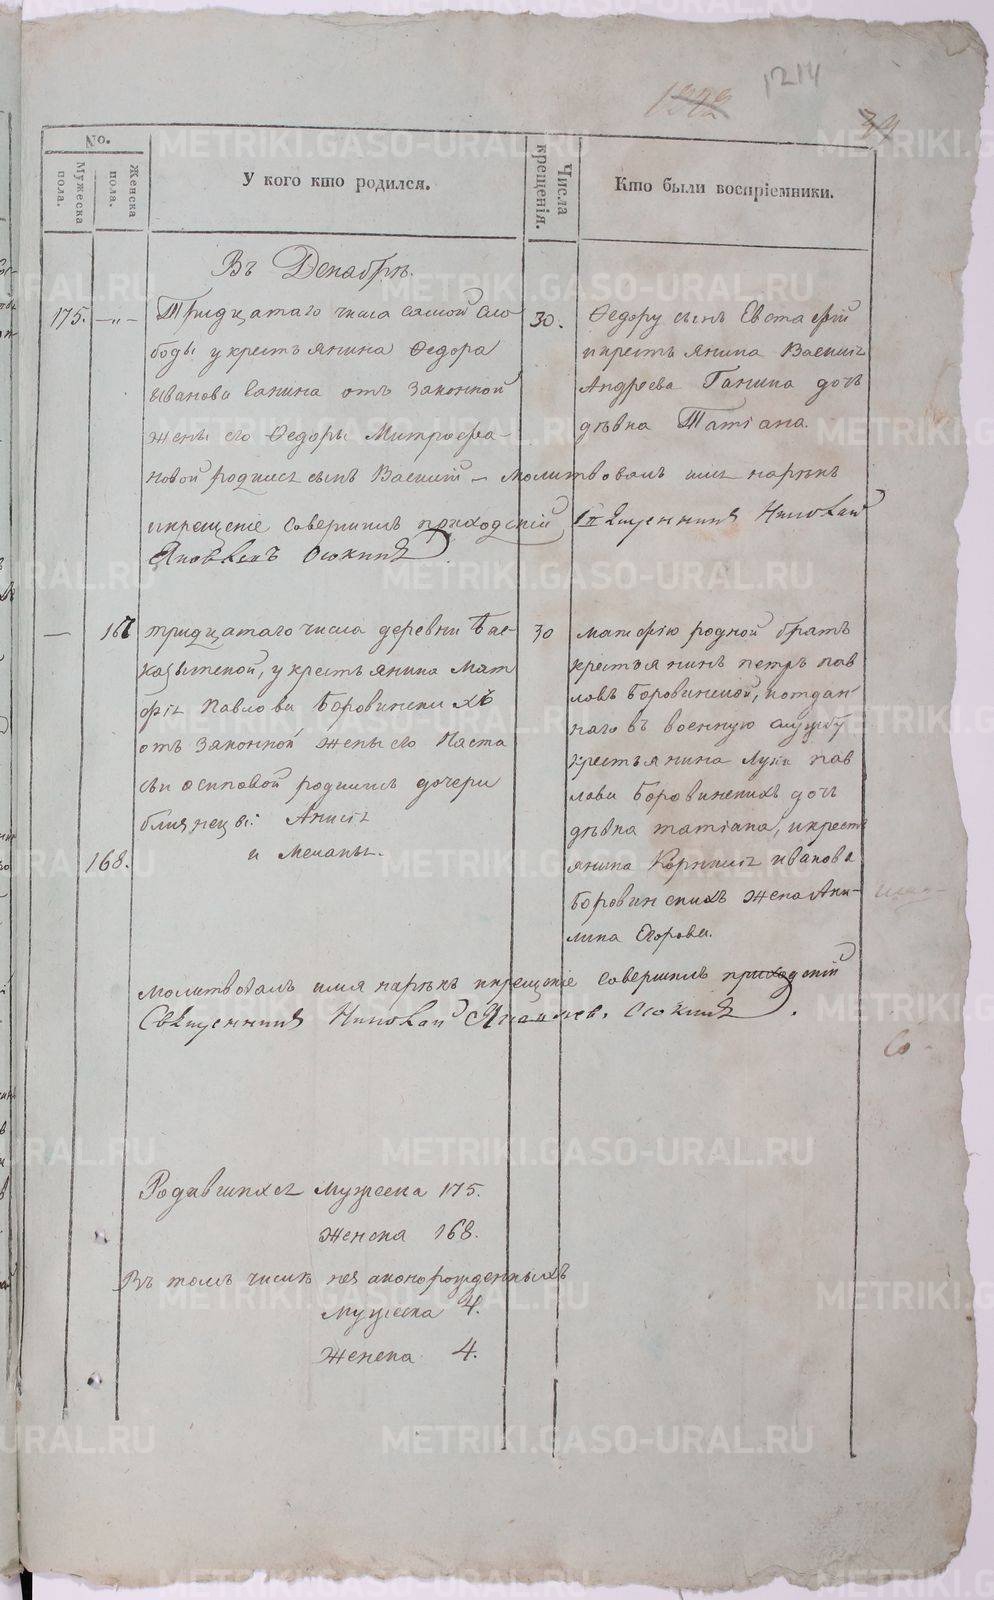 1214
1372
34
No.
Мужеска пола.
Женска пола.
У кого кто родился.
Числа крещенія.
Кто были воспріемники.
Въ Декабрѣ.
175. —„— Тридцатаго числа самой Сло-
боды у крестьянина Федора
Иванова Ганина отъ законной
жены его Федоры Митрофа-
новой родился сынъ Василій — молитвовалъ имя нарекъ
и крещеніе совершилъ приходскій Священникъ Николай
Яковлевъ Осокинъ
30. Федору сынъ Евстафій
и крестьянина Василія
Андреева Ганина дочь
дѣвка Татіана.
— 167 тридцатаго числа деревни
у крестьянина Мат
фія Павлова Боровинскихъ
отъ законной жены его Наста
сьи Осиповой родились дочери
близнецы: Анисія
168. и Меланья.
30 Матфію родной братъ
крестьянинъ Петръ Пав
ловъ Боровинской, и отдан-
наго въ военную службу
крестьянина Луки Пав
лова Боровинскихъ дочь
дѣвка Татіана, и кресть
янина Корнилія Иванова
Боровинскихъ жена Аки-
лина Егорова.
молитвовалъ имя нарекъ и крещеніе совершилъ приходскій
Священникъ Николай Яковлевъ Осокинъ.
Родившихся мужеска 175.
женска 168.
Въ томъ числѣ незаконорожденныхъ
мужеска 4.
женска 4.
METRIKI.GASO-URAL.RU